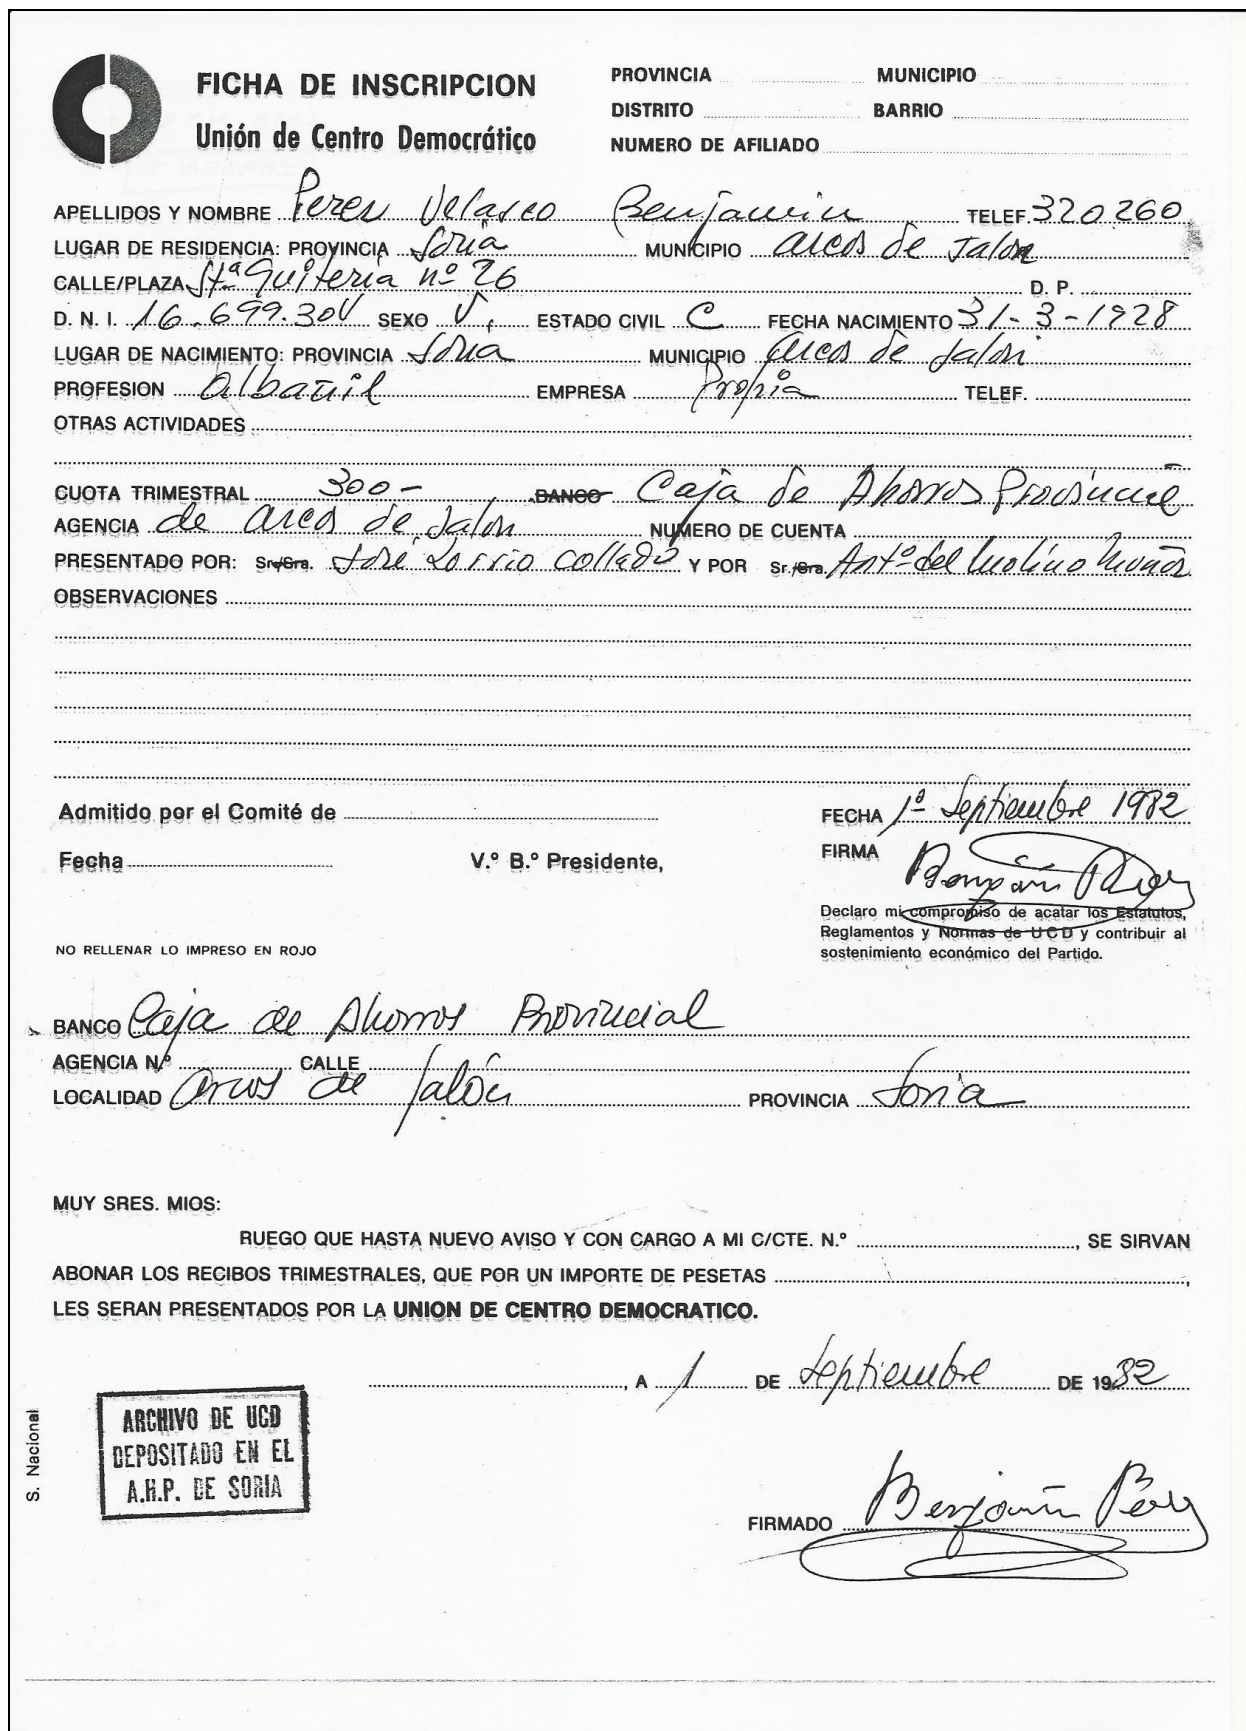 FICHA DE INSCRIPCION
Unión de Centro Democrático
PROVINCIA MUNICIPIO
DISTRITO BARRIO
NUMERO DE AFILIADO
APELLIDOS Y NOMBRE Perez Velasco Benjamin TELEF. 320260
LUGAR DE RESIDENCIA: PROVINCIA Soria MUNICIPIO Arcos de Jalon
CALLE/PLAZA Stª Quiteria nº 26 D. P.
D. N. I. 16.699.30 SEXO V. ESTADO CIVIL C FECHA NACIMIENTO 31-3-1928
LUGAR DE NACIMIENTO: PROVINCIA Soria MUNICIPIO Arcos de Jalon
PROFESION Albañil EMPRESA Propia TELEF.
OTRAS ACTIVIDADES
CUOTA TRIMESTRAL 300- BANCO Caja de Ahorros Provincial
AGENCIA de Arcos de Jalon NUMERO DE CUENTA
PRESENTADO POR: Sr./Sra. José Lorrio Collado Y POR Sr./Sra. Antº del Molino Muñoz
OBSERVACIONES
Admitido por el Comité de
FECHA 1º Septiembre 1982
Fecha V.º B.º Presidente,
FIRMA Benjamín Pérez
Declaro mi compromiso de acatar los Estatutos,
Reglamentos y Normas de UCD y contribuir al
sostenimiento económico del Partido.
NO RELLENAR LO IMPRESO EN ROJO
BANCO Caja de Ahorros Provincial
AGENCIA N.º CALLE
LOCALIDAD Arcos de Jalón PROVINCIA Soria
MUY SRES. MIOS:
RUEGO QUE HASTA NUEVO AVISO Y CON CARGO A MI C/CTE. N.º , SE SIRVAN
ABONAR LOS RECIBOS TRIMESTRALES, QUE POR UN IMPORTE DE PESETAS ,
LES SERAN PRESENTADOS POR LA UNION DE CENTRO DEMOCRATICO.
, A 1 DE Septiembre DE 1982
S. Nacional
ARCHIVO DE UCD
DEPOSITADO EN EL
A.H.P. DE SORIA
FIRMADO Benjamín Pérez